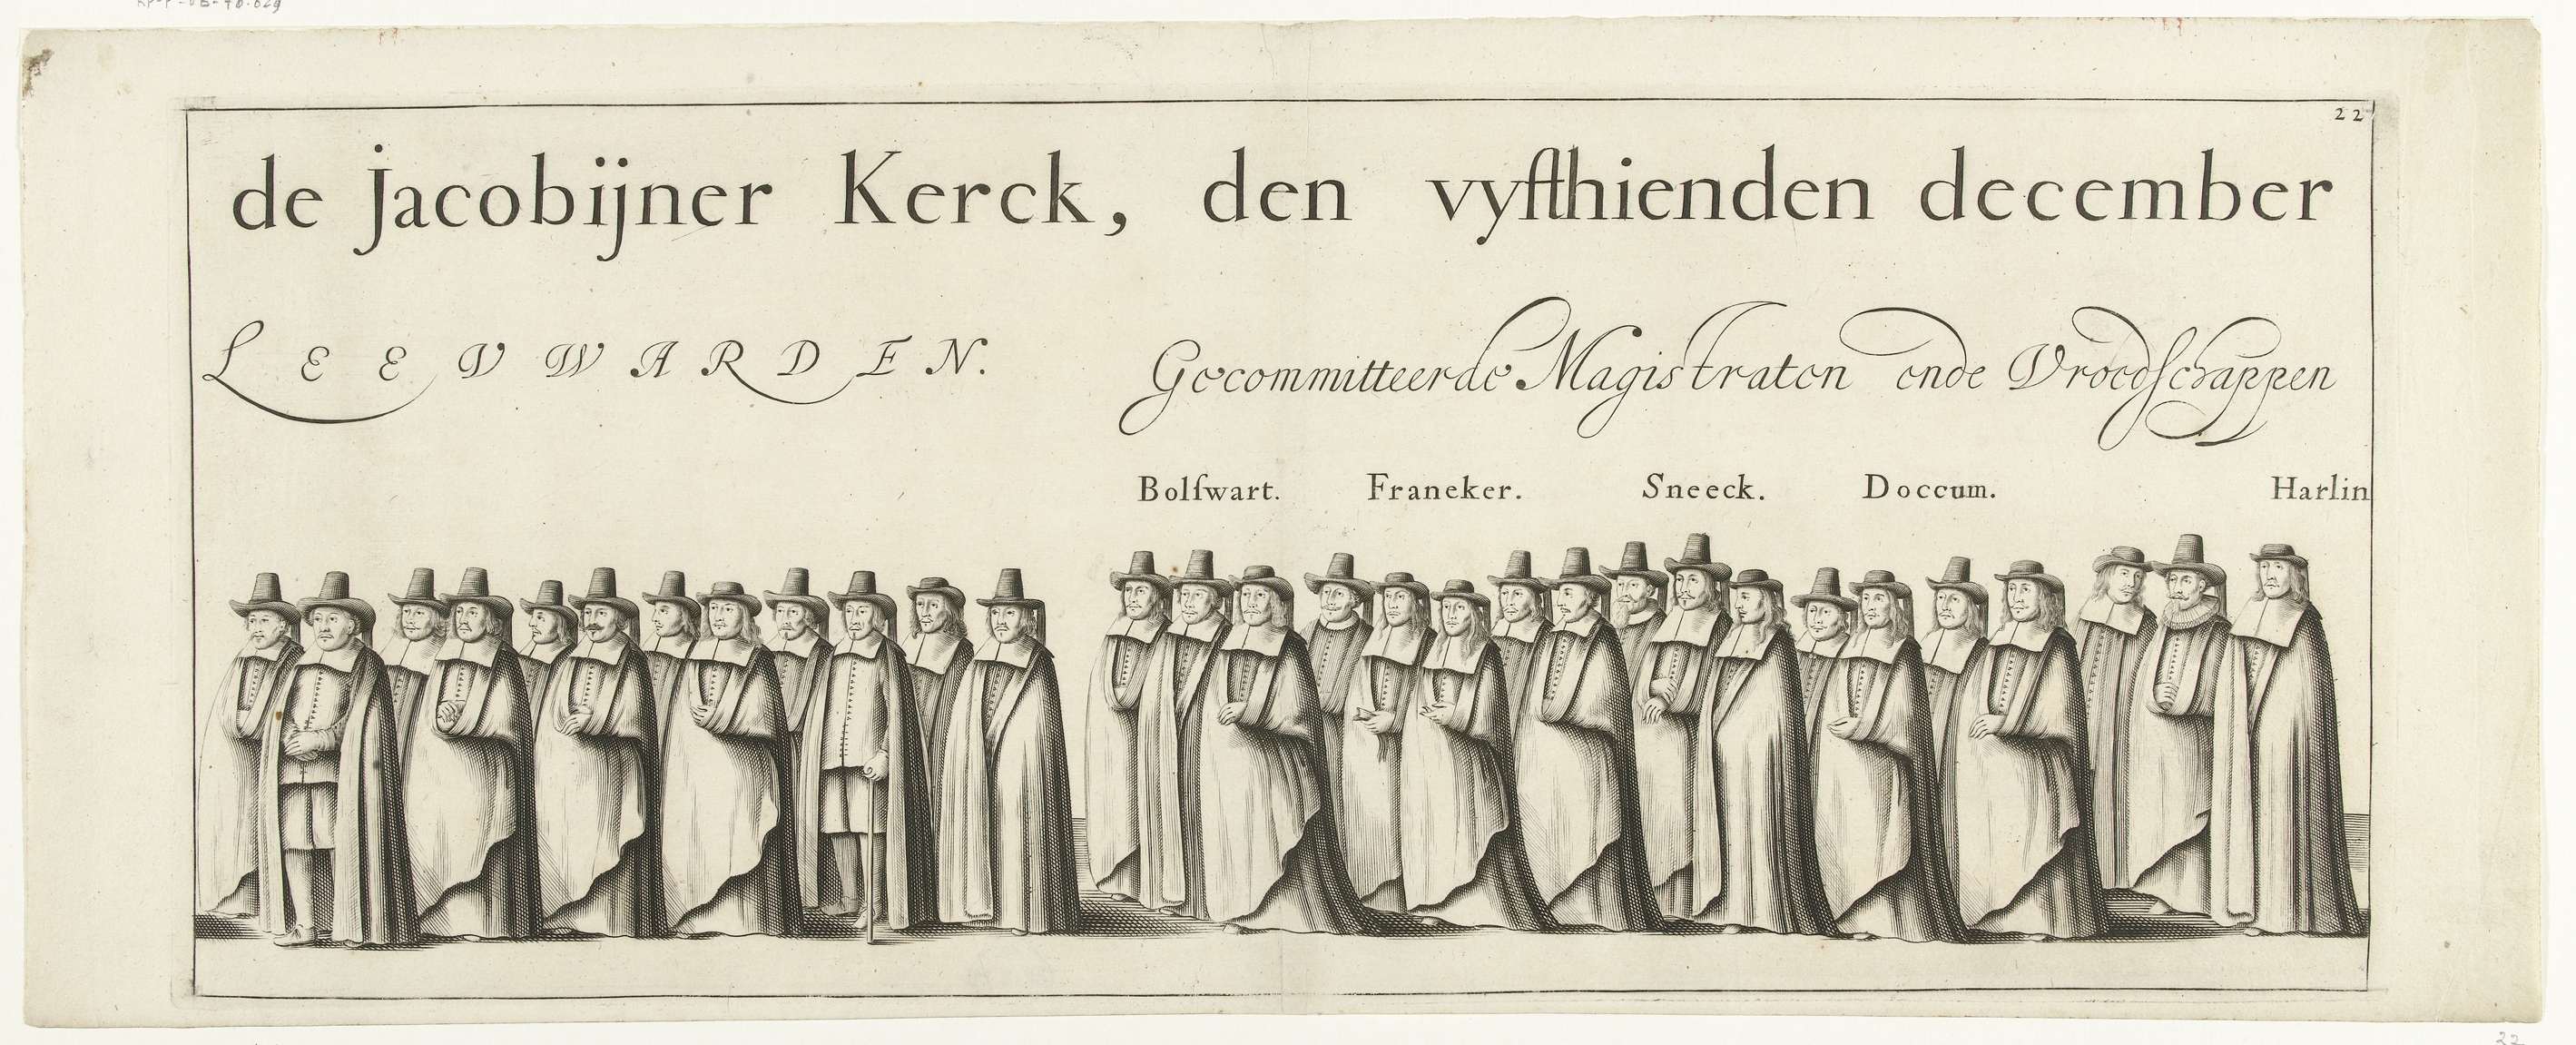 22
de jacobijner Kerck, den vyfthienden december
LEEUWARDEN. Gecommitteerde Magistraten ende Vroedſchappen
Bolſwart. Franeker. Sneeck. Doccum. Harlin
22